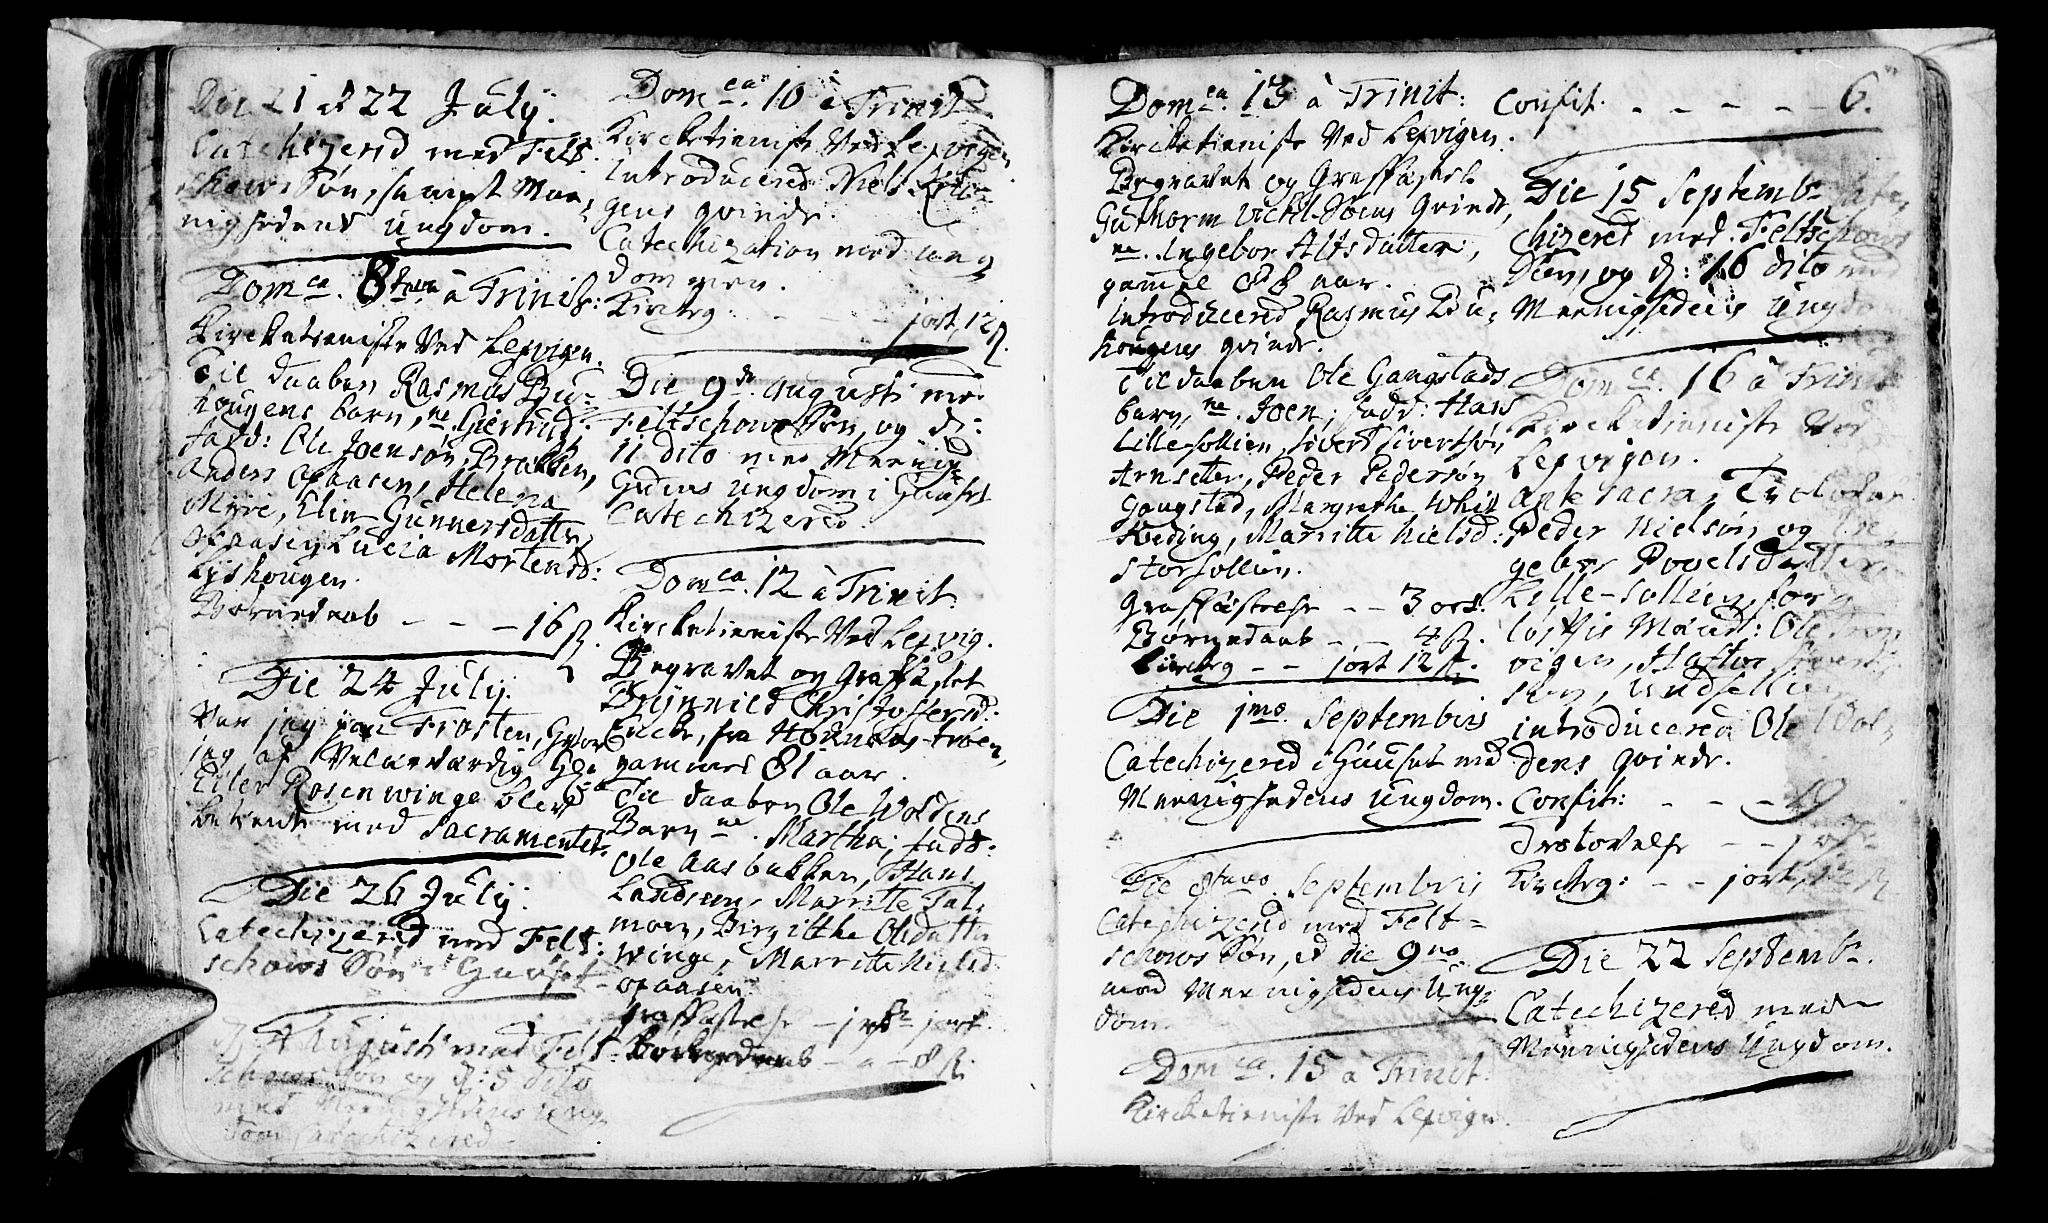 Die 21 et 22 July.
Catechizered med Felt-
schows Søn, sampt Mee-
nighedens Ungdom.
Domca. 8tava â Trinit:
Kircketieniste Ved Lexvigen.
Til daaben Rasmus Bu-
hougens barn, ne. Giertrud
fadd: Ole Joensøn Brakken,
Anders Opaasen, Helena
Myre, Elin Gunnersdatter
Opaasen, Lucia Mortensd:
Lyshougen.
Børnedaab - - - 16 ß.
Die 24 July.
Var jeg paa Frosten, hvor
jeg af Velærværdig Hr.
Eiler Rosenwinge blev
betient med Sacramentet.
Die 26 July.
Catechizered med Felt-
schows Søn i Huuset
D. 4 Augusti med Felt-
schows Søn og d: 5 dito
med Meenighedens Ung-
dom Catechizered
Domca. 10 â Trinit
Kircketieniste Ved Lexvigen
Introducered Niels
gens qvinde.
Catechization med ung
dommen.
Kircketg. - - - jort 12 ß.
Die 9de Augusti med
Feltschows Søn, og d:
11 dito med Meenig-
hedens ungdom i Huuset
Catechizered.
Domca. 12 â Trinit.
Kircketieniste Ved Lexvig.
Begravet og Graffæstet
Brynnild Christoffersd:
Encke, fra Hodnæs-troen,
gammel 81 aar.
Til daaben Ole Woldens
Barn ne. Martha; fadd:
Ole Aasbakken, Hans
Landsem, Marritte Fal-
moen, Birgitthe Olsdatter
Winge, Marritte Nielsd
Opaasen.
Graffæstelse - jort
Børnedaab - - 8 ß.
Domca. 13 â Trinit:
Kircketieniste Ved Lexvigen.
Begravet og Graffæstet
Guthorm Vichl-Søens Qvinde,
ne. Ingebor Alfsdatter,
gammel 88 aar.
Introducered Rasmus Bu-
hougens qvinde.
Til daaben Ole Gangstads
barn, ne. Joen; fadd: Hans
Lille-sollien, Sivert Sivertsøn
Arnsetter, Peder Pedersøn
Gangstad, Margrethe Whit
Hæding, Marritte Nielsd:
Storsollien.
Graffæstelse - - 3 ort.
Børnedaab - - 4 ß.
Kircketg - - jort 12 ß.
Die 1mo Septembris
Catechizered i Huuset med
Meenighedens Ungdom.
Die 8tavo Septembris
Catechizered med Felt-
schows Søn, et die 9no
med Meenighedens Ung-
dom.
Domca. 15 â Trinit.
Kircketieniste Ved Lexvigen.
Confit. - - - - - 6.
Die 15 Septembr. Cate-
chizered med Feltschows
Søn, og d: 16 dito med
Meenighedens Ungdom
Domca. 16 â Trinit
Kircketieniste Ved
Lexvigen.
Ante Sacra, Trolovar
Peder Nielsøn og Inge-
gebor Povelsdatter
Lille-Sollien, for-
løffts Mænd: Ole Trox-
vigen, Haftor Siverts-
søn, Undsollien
Introducered Ole Wol-
dens qvinde.
Confit: - - - 49
Trolovelse - - 1
Kircketg: - - jort 12 ß
Die 22 Septembr.
Catechizered med
Meenighedens Ungdom.